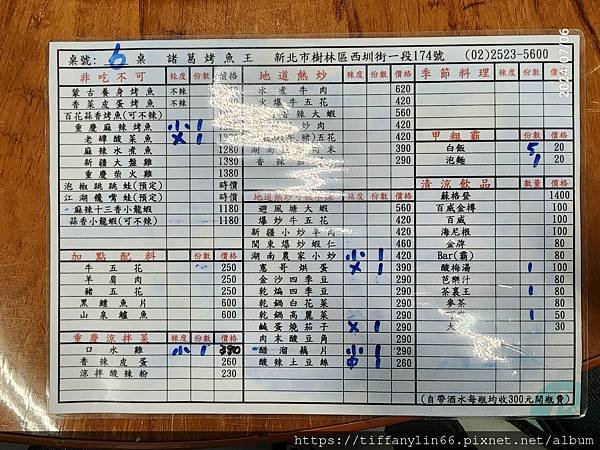 桌號: 6 桌 諸葛烤魚王 新北市樹林區西圳街一段174號 (02)2523-5600
非吃不可 辣度 份數 價格
蒙古養身烤魚 不辣
香菜皮蛋烤魚 不辣
百花蒜香烤魚(可不辣)
重慶麻辣烤魚 小 1
老罈酸菜魚 X 1
麻辣水煮魚 1280
新疆大盤雞 1380
重慶柴火雞 1380
泡椒跳跳蛙(預定) 時價
江湖饞嘴蛙(預定) 時價
麻辣十三香小龍蝦 1180
蒜香小龍蝦(可不辣) 1180
加點配料 份數 價格
牛五花 250
羊肩肉 250
豬五花 250
黑鱸魚片 600
山泉鱸魚 600
重慶涼拌菜 辣度 份數 價格
口水雞 小 1 380
香辣皮蛋 260
涼拌酸辣粉 230
地道熱炒 辣度 份數 價格
水煮牛肉 620
火爆牛五花 420
香辣大蝦 560
炒肉 420
420
湖南 末 390
香辣 290
地道熱炒 辣度 份數 價格
避風塘大蝦 560
爆炒牛五花 420
新疆小炒羊肉 420
閩東爆炒蝦仁 460
湖南農家小炒 小 1 420
憲哥烘蛋 X 1 390
金沙四季豆 290
乾煸四季豆 290
乾鍋白花菜 290
乾鍋高麗菜 290
鹹蛋燒茄子 X 1 290
肉末酸豆角 290
醋溜藕片 小 1 290
酸辣土豆絲 中 1 260
季節料理 份數 價格
甲粗霸 份數 價格
白飯 5 20
泡麵 1 20
清涼飲品 數量 價格
蘇格登 1400
百威金樽 100
百威 100
海尼根 100
金牌 80
Bar(霸) 80
酸梅湯 1 100
芭樂汁 80
茶裏王 1 80
麥茶 50
1 50
大 30
(自帶酒水每瓶均收300元開瓶費)
2024/07/06
https://tiffanylin66.pixnet.net/album